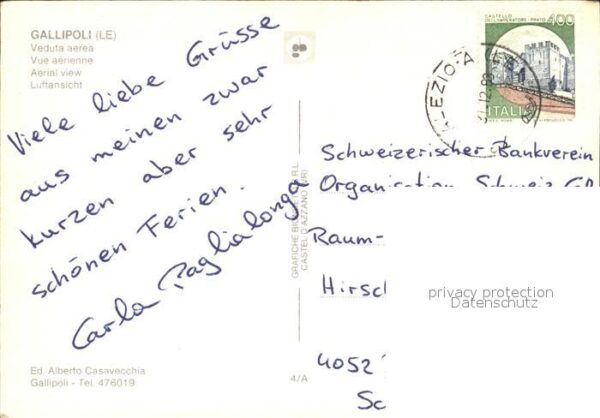 GALLIPOLI (LE)
Veduta aerea
Vue aérienne
Aerial view
Luftansicht
Viele liebe Grüsse
aus meinen zwar
kurzen aber sehr
schönen Ferien.
Carla Paglialonga
Ed. Alberto Casavecchia
Gallipoli - Tel. 476019
CASTEL D'AZZANO (VR)
4/A
CASTELLO
DELL'IMPERATORE - PRATO
400
ITALIA
Schweizerischer Bankverein
Organisation Schweiz
Raum-
Hirsch
4052
privacy protection
Datenschutz